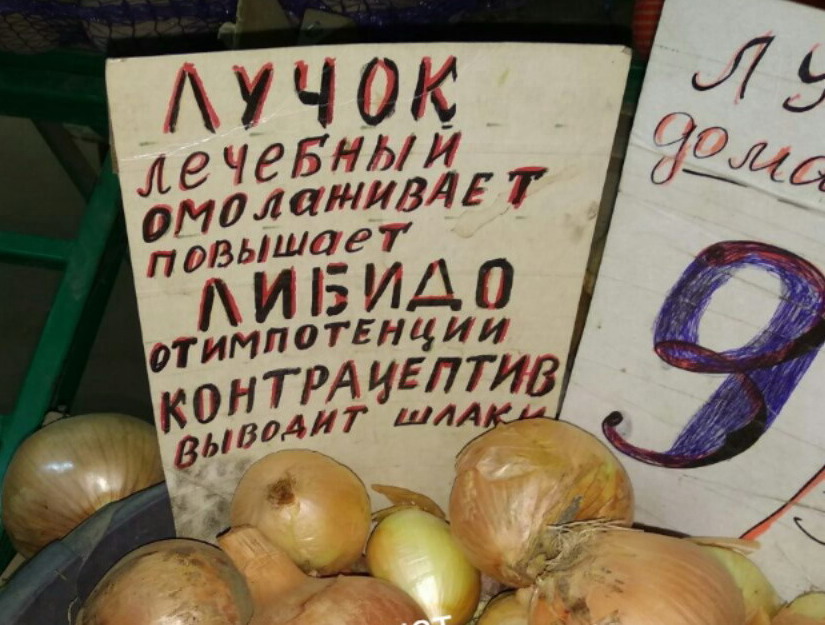 ЛУЧОК
лечебный
омолаживает
повышает
ЛИБИДО
от импотенции
КОНТРАЦЕПТИВ
выводит шлаки
9